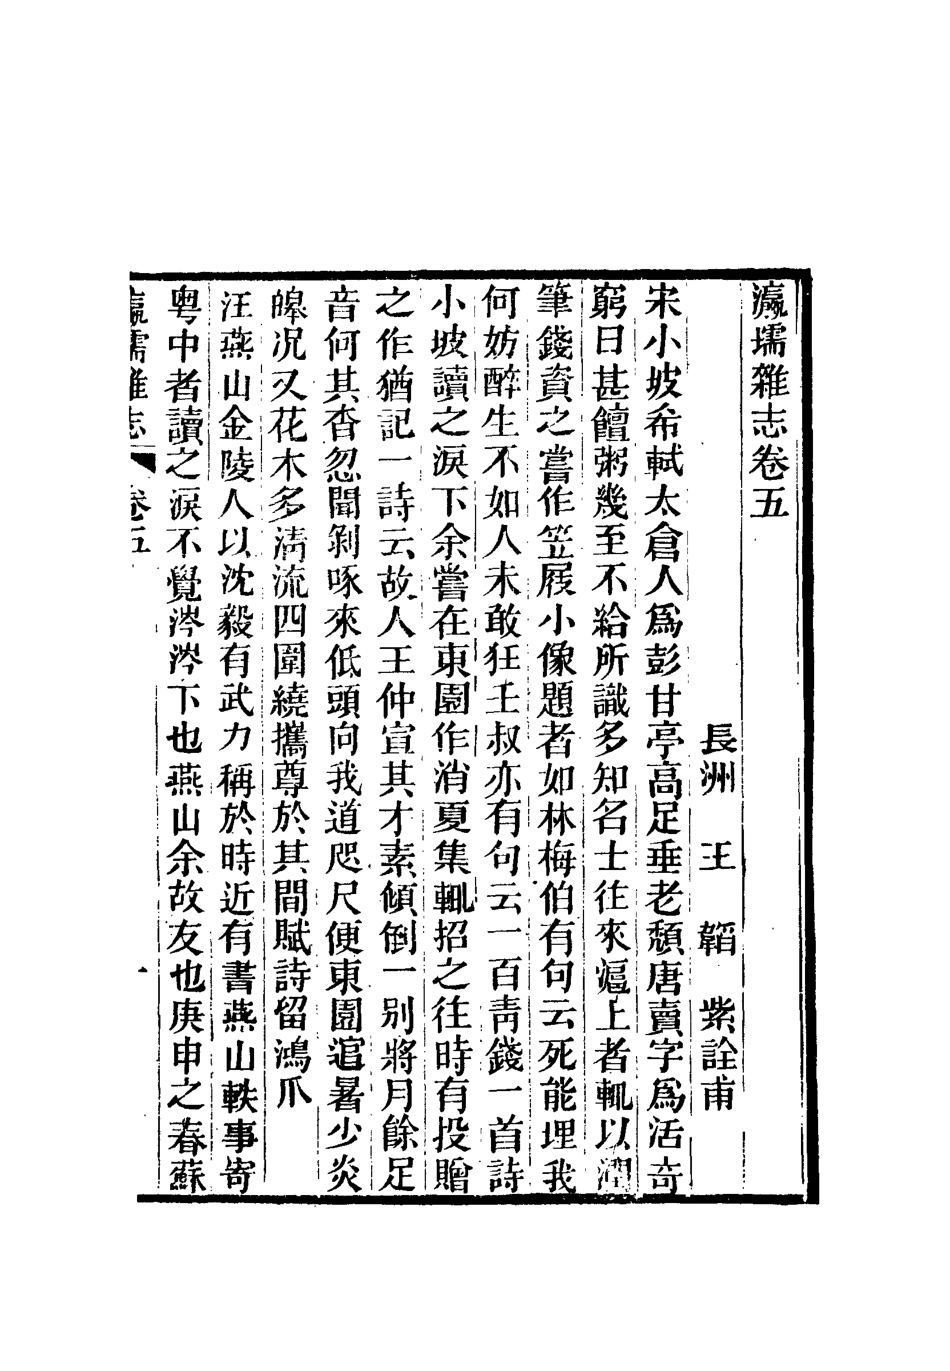 瀛壖雜志卷五
長洲 王 韜 紫詮甫
宋小坡希軾太倉人爲彭甘亭高足垂老頹唐賣字爲活奇
窮日甚饘粥幾至不給所識多知名士往來滬上者輒以潤
筆錢資之嘗作笠屐小像題者如林梅伯有句云死能埋我
何妨醉生不如人未敢狂壬叔亦有句云一百靑錢一首詩
小坡讀之淚下余嘗在東園作消夏集輒招之往時有投贈
之作猶記一詩云故人王仲宣其才素傾倒一別將月餘足
音何其杳忽聞剝啄來低頭向我道咫尺便東園逭暑少炎
皞况又花木多淸流四圍繞攜尊於其間賦詩留鴻爪
汪燕山金陵人以沈毅有武力稱於時近有書燕山軼事寄
粤中者讀之淚不覺涔涔下也燕山余故友也庚申之春蘇
瀛壖雜志 卷五 一